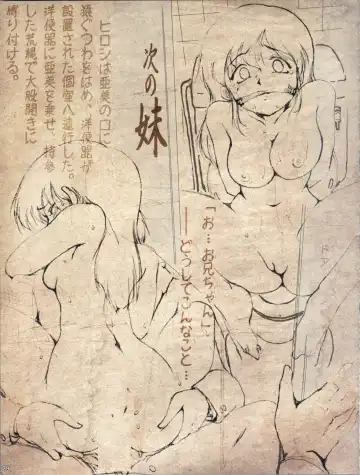 次の妹
ヒロシは亜美の口に
猿ぐつわをはめ、洋便器が
設置された個室へ連行した。
洋便器に亜美を乗せ、持参
した荒縄で大股開きに
縛り付ける。
「お…お兄ちゃん」、
――どうしてこんなこと…